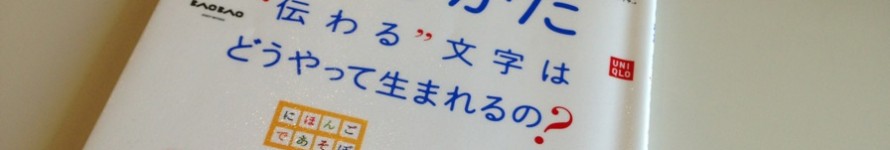 かた
KAOKAO
“伝わる”文字は
UNI
QLO
どうやって生まれるの?
にほんご
であそぼ